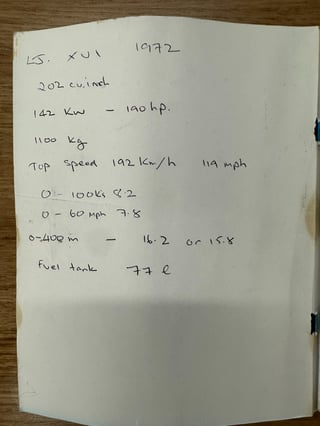 LJ. XU1 1972
202 cu.inch
142 KW - 190 hp.
1100 kg
Top Speed 192 Km/h 119 mph
0 - 100Ks 8.2
0 - 60 mph 7.8
0-400 m - 16.2 or 15.8
Fuel tank 77 l